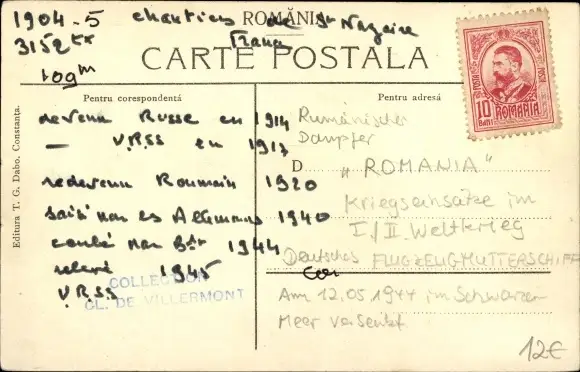 ROMÂNIA
1904-5 chantiers de St Nazaire
3152 tx France
109m
CARTE POSTALA
Pentru corespondentá
Pentru adresá
devenu Russe en 1914
— U.R.S.S en 1917
redevenu Roumain 1920
saisi par les Allemands 1940
coulé par Bdt 1944
relevé 1945
U.R.S.S
COLLECTION
CL. DE VILLERMONT
Editura T. G. Dabo, Constanța.
POSTA
POSTA
10 BANI
ROMANIA
Rumänischer
Dampfer
D „ROMANIA"
Kriegseinsätze im
I/II Weltkrieg
Deutsches FLUGZEUGMUTTERSCHIFF
Am 12.05 1944 im Schwarzen
Meer versenkt
12€